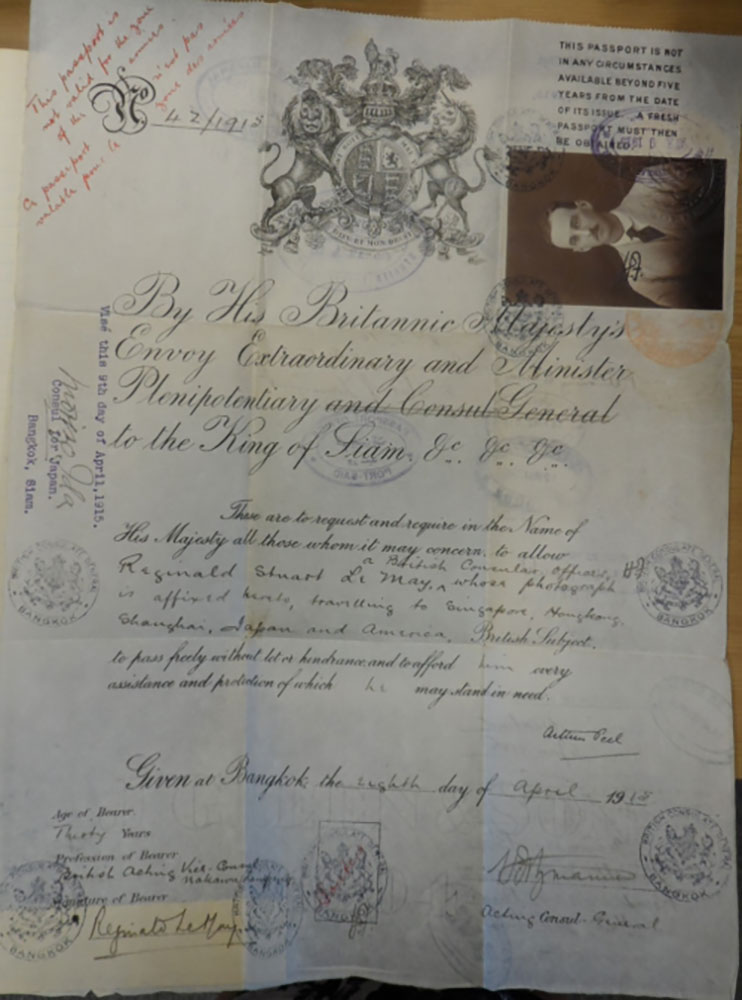 This passport is
not valid for the zone
of the armies
Ce passeport n'est pas
valable pour la zone des armées
No 42/1915
THIS PASSPORT IS NOT
IN ANY CIRCUMSTANCES
AVAILABLE BEYOND FIVE
YEARS FROM THE DATE
OF ITS ISSUE. A FRESH
PASSPORT MUST THEN
BE OBTAINED.
DIEU ET MON DROIT
By His Britannic Majesty's
Envoy Extraordinary and Minister
Plenipotentiary and Consul General
to the King of Siam, &c. &c. &c.
Visé this 9th day of April, 1915.
Consul for Japan.
Bangkok, Siam.
These are to request and require in the Name of
His Majesty all those whom it may concern to allow
Reginald Stuart Le May, a British Consular Officer, whose photograph
is affixed hereto, travelling to Singapore, Hongkong,
Shanghai, Japan and America, British Subject,
to pass freely without let or hindrance and to afford him every
assistance and protection of which he may stand in need.
BRITISH CONSULATE GENERAL
BANGKOK
BRITISH CONSULATE GENERAL
BANGKOK
Arthur Peel
Given at Bangkok, the eighth day of April 1915
Age of Bearer
Thirty Years
Profession of Bearer
British Acting Vice-Consul
Signature of Bearer
Reginald Le May
Acting Consul-General
BRITISH CONSULATE GENERAL
BANGKOK
BANGKOK
BANGKOK